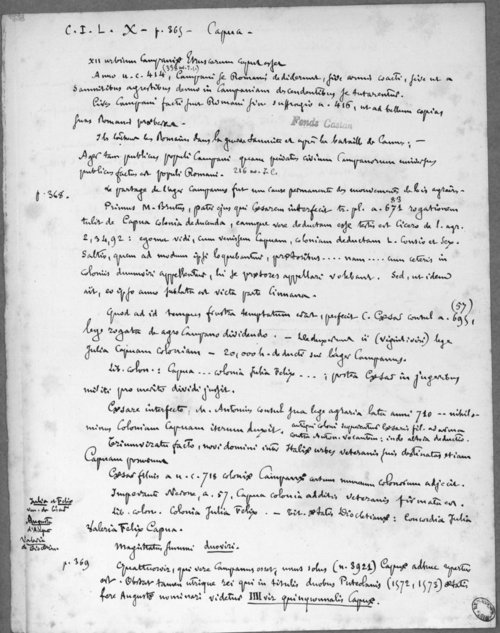 C. I. L. X - p. 365 - Capua -
XII urbium Campaniæ Etruscarum caput esse
Anno u. c. 414, (338 av. J. C.) Campani se Romanis dediderunt, sive armis coacti, sive ut a
Samnitibus agrestibus denuo in Campaniam descendentibus se tutarentur.
Cives Campani facti sunt Romani sine suffragio a. 416, ut ad bellum copias
suas Romanis
Fonds Castan
les Romains dans la guerre Samnite et après la bataille de Cannes ; -
Ager tam publicus populi Campani quam privatus civium Campanorum universus
publicus factus est populi Romani. 216 av. J. C.
p. 368. le partage de l'ager Campanus fut une cause permanente des mouvements de lois agraires -
Primus M. Brutus, pater ejus qui Cæsarem interfecit tr. pl. a. 671 83 rogationem
tulit de Capua colonia deducenda, eamque vere deductam esse testis est Cicero de l. agr.
2, 34, 92 : egomet vidi, cum venissem Capuam, coloniam deductam L. Consio et Sex.
Saltio, quem ad modum ipsi loquebantur, prætoribus .... nam .... cum ceteris in
coloniis duumviri appellentur, hi se prætores appellari volebant. Sed, ut idem
ait, eo ipso anno sublata est victa parte Cinnana.
Quod ad id tempus frustra temptatum erat, perfecit C. Cæsar consul a. 695, (57)
lege rogata de agro Campano dividendo. - Deduxerunt ii (vigintiviri) lege
Julia Capuam coloniam - 20,000 h. deducti sur l'ager Campanus.
Lib. colon. : Capua ... colonia Julia Felix ... ; postea Cæsar in jugeribus
militi pro merito dividi jussit.
Cæsare interfecto, M. Antonius consul sua lege agraria lata anni 710 -- nihilo-
minus Coloniam Capuam iterum duxit. antiqui coloni
contra Antonium vocantur ;
Triumviratu facto, novi domini inter Italiæ urbes veteranis suis destinatas etiam
Capuam
Cæsar filius a u. c. 718 coloniæ Campanæ novum numerum colonorum adjecit.
Imperante Nerone, a. 57, Capua colonia additis veteranis firmata est.
Lib. colon. Colonia Julia Felix. - Tit. ætatis Diocletianæ : Concordia Julia
Valeria Felix Capua.
Julia et Felix
Augusta
Valeria
Magistratus summi duoviri.
p. 369 Quattuorviri, qui vere Campanus esset, unus solus (n. 3921) Capuæ adhuc repertus
est. Obstat tamen utique rei qui in titulis duobus Puteolanis (1572, 1573) ætatis
fere Augustæ nominari videtur IIII vir quinquennalis Capuæ.